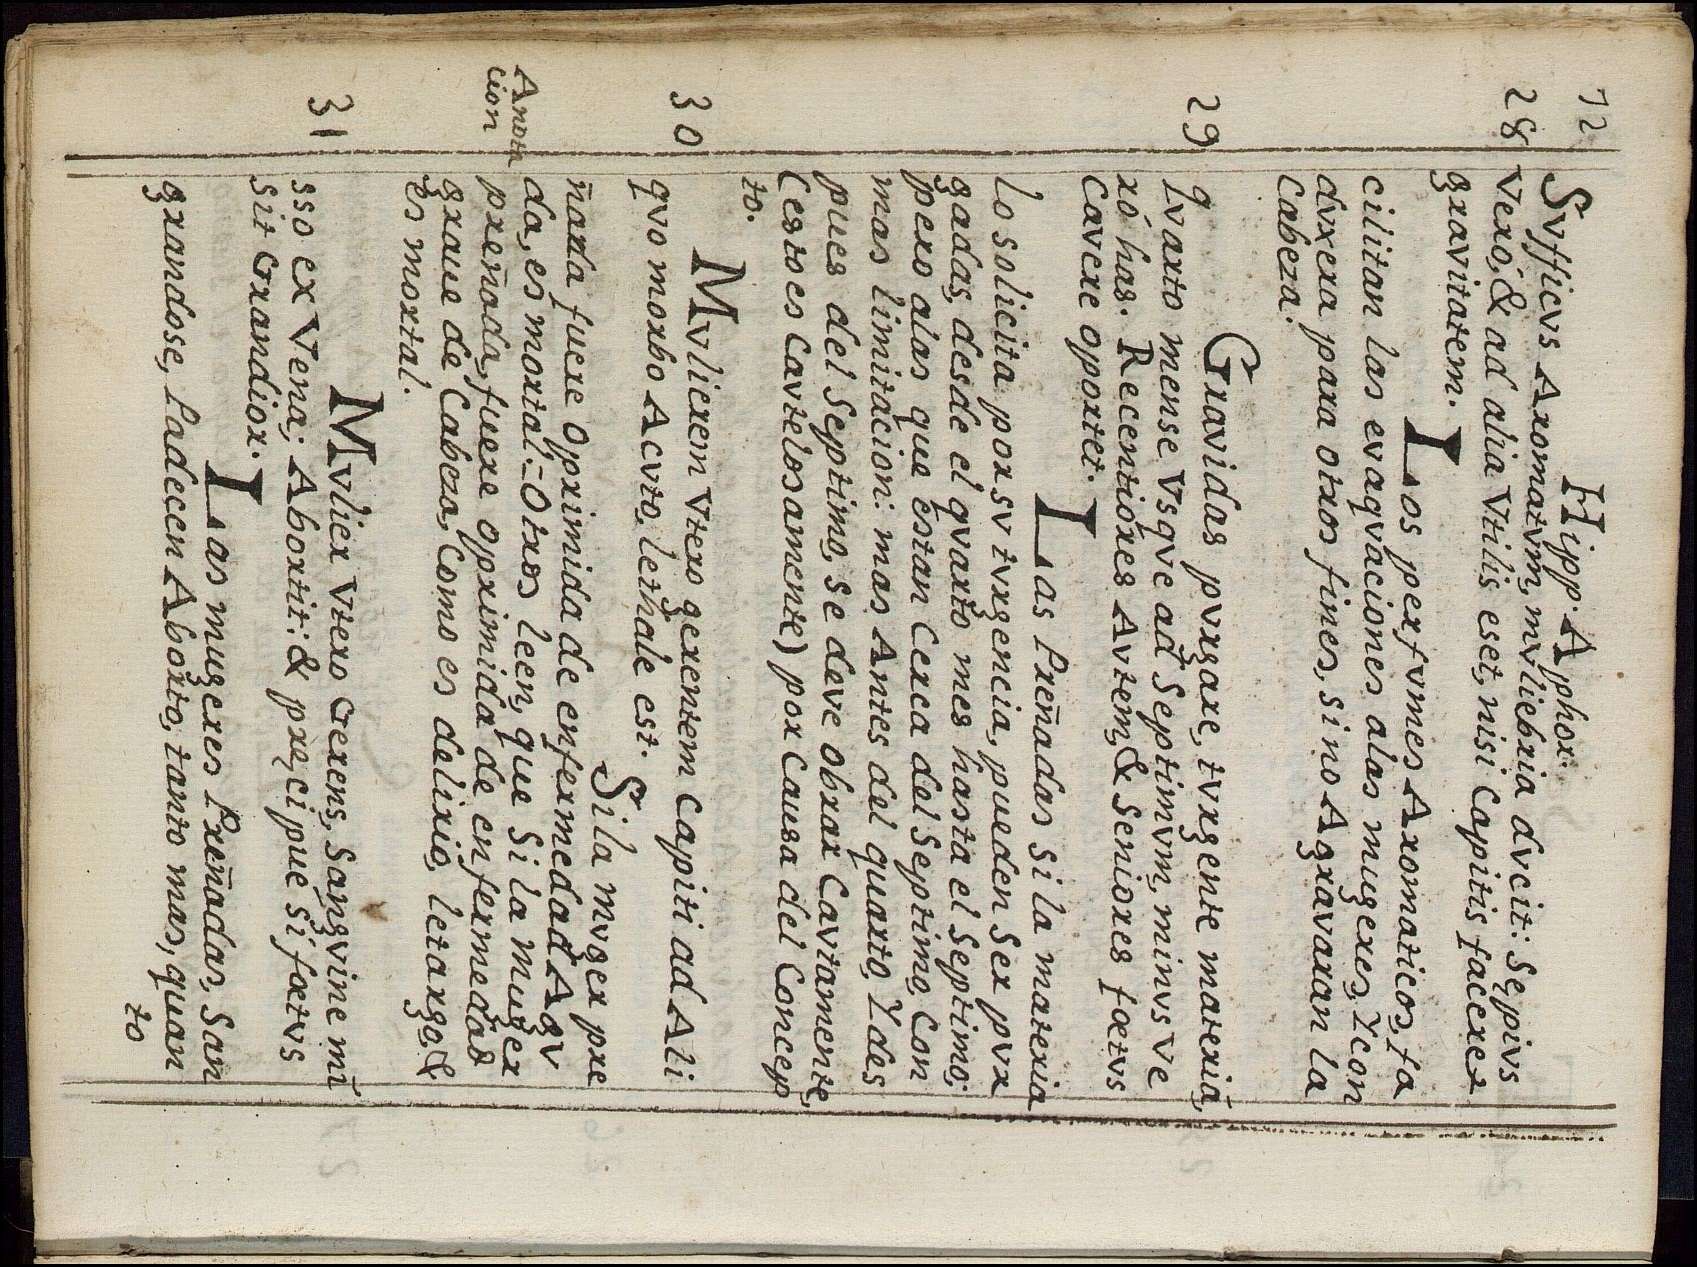 72
Hipp. Aphor.
28
Svfficvs Aromatvm, mvliebria dvcit: Sępivs
Veró, & ad alia Vtilis eset, nisi Capitis facere+
gravitatem.
Los perfvmes Aromaticos, fa
cilitan las evaqvaciones alas mugeres, Y con
dvxera para otros fines, si no Agravaran la
Cabeza.
29
Gravidas pvrgare, tvrgente materia,
qvarto mense Vsqve ad Septimvm, minvs Ve
ró has. Recentiores Avtem, & Seniores fœtvs
Cavere oportet.
Las Preñadas si la materia
lo solicita por sv tvrgencia, pueden Ser pvr
gadas, desde el qvarto mes hasta el Septimo;
pero alas que estan Cerca del Septimo, Con
mas limitacion: mas Antes del quarto, Y des
pues del Septimo, se deve obrar Cavtamente,
(esto es Cavtelosamente) por Causa del Concep
to.
30
Mvlierem Vtero gerentem Capiti ad Ali
qvo morbo Acvto, lethale est.
Si la mvger pre
ñada fuere Oprimida de enfermedad Agv
da, es mortal = Otros leen, que Si la muger
Anota
cion
preñada, fuere oprimida de enfermedad
graue de Cabeza, Como es delirio, letargo, &
es mortal.
31
Mvlier Vtero Gerens, Sangvine mi
sso ex Vena; Abortit: & pręcipue Si fœtvs
sit Grandior.
Las mugeres Preñadas, San
grandose, Padecen Aborto, tanto mas, quan
to